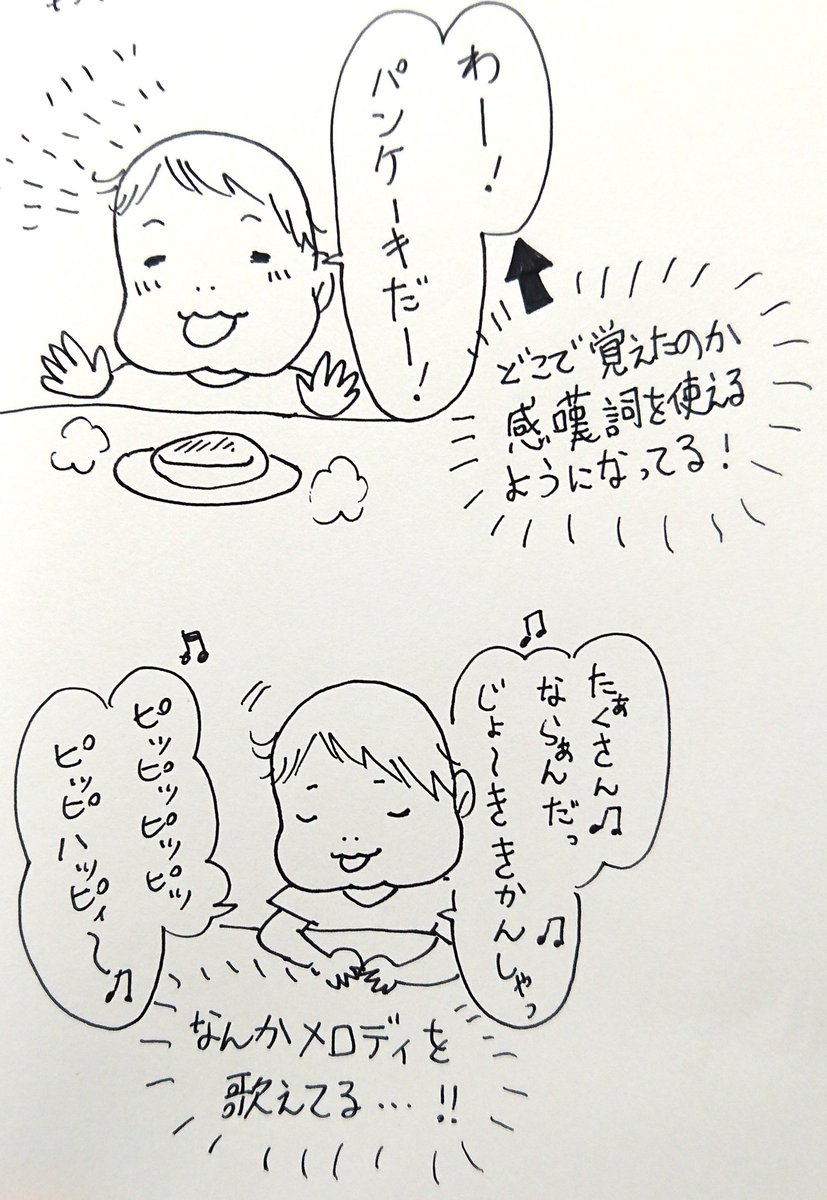 わー!
パンケーキだー!
どこで覚えたのか
感嘆詞を使える
ようになってる!
たぁくさん♫
ならぁんだっ
じょ〜ききかんしゃっ♫
ピッピッピッピッ
ピッピハッピィ〜♫
なんかメロディを
歌えてる…!!